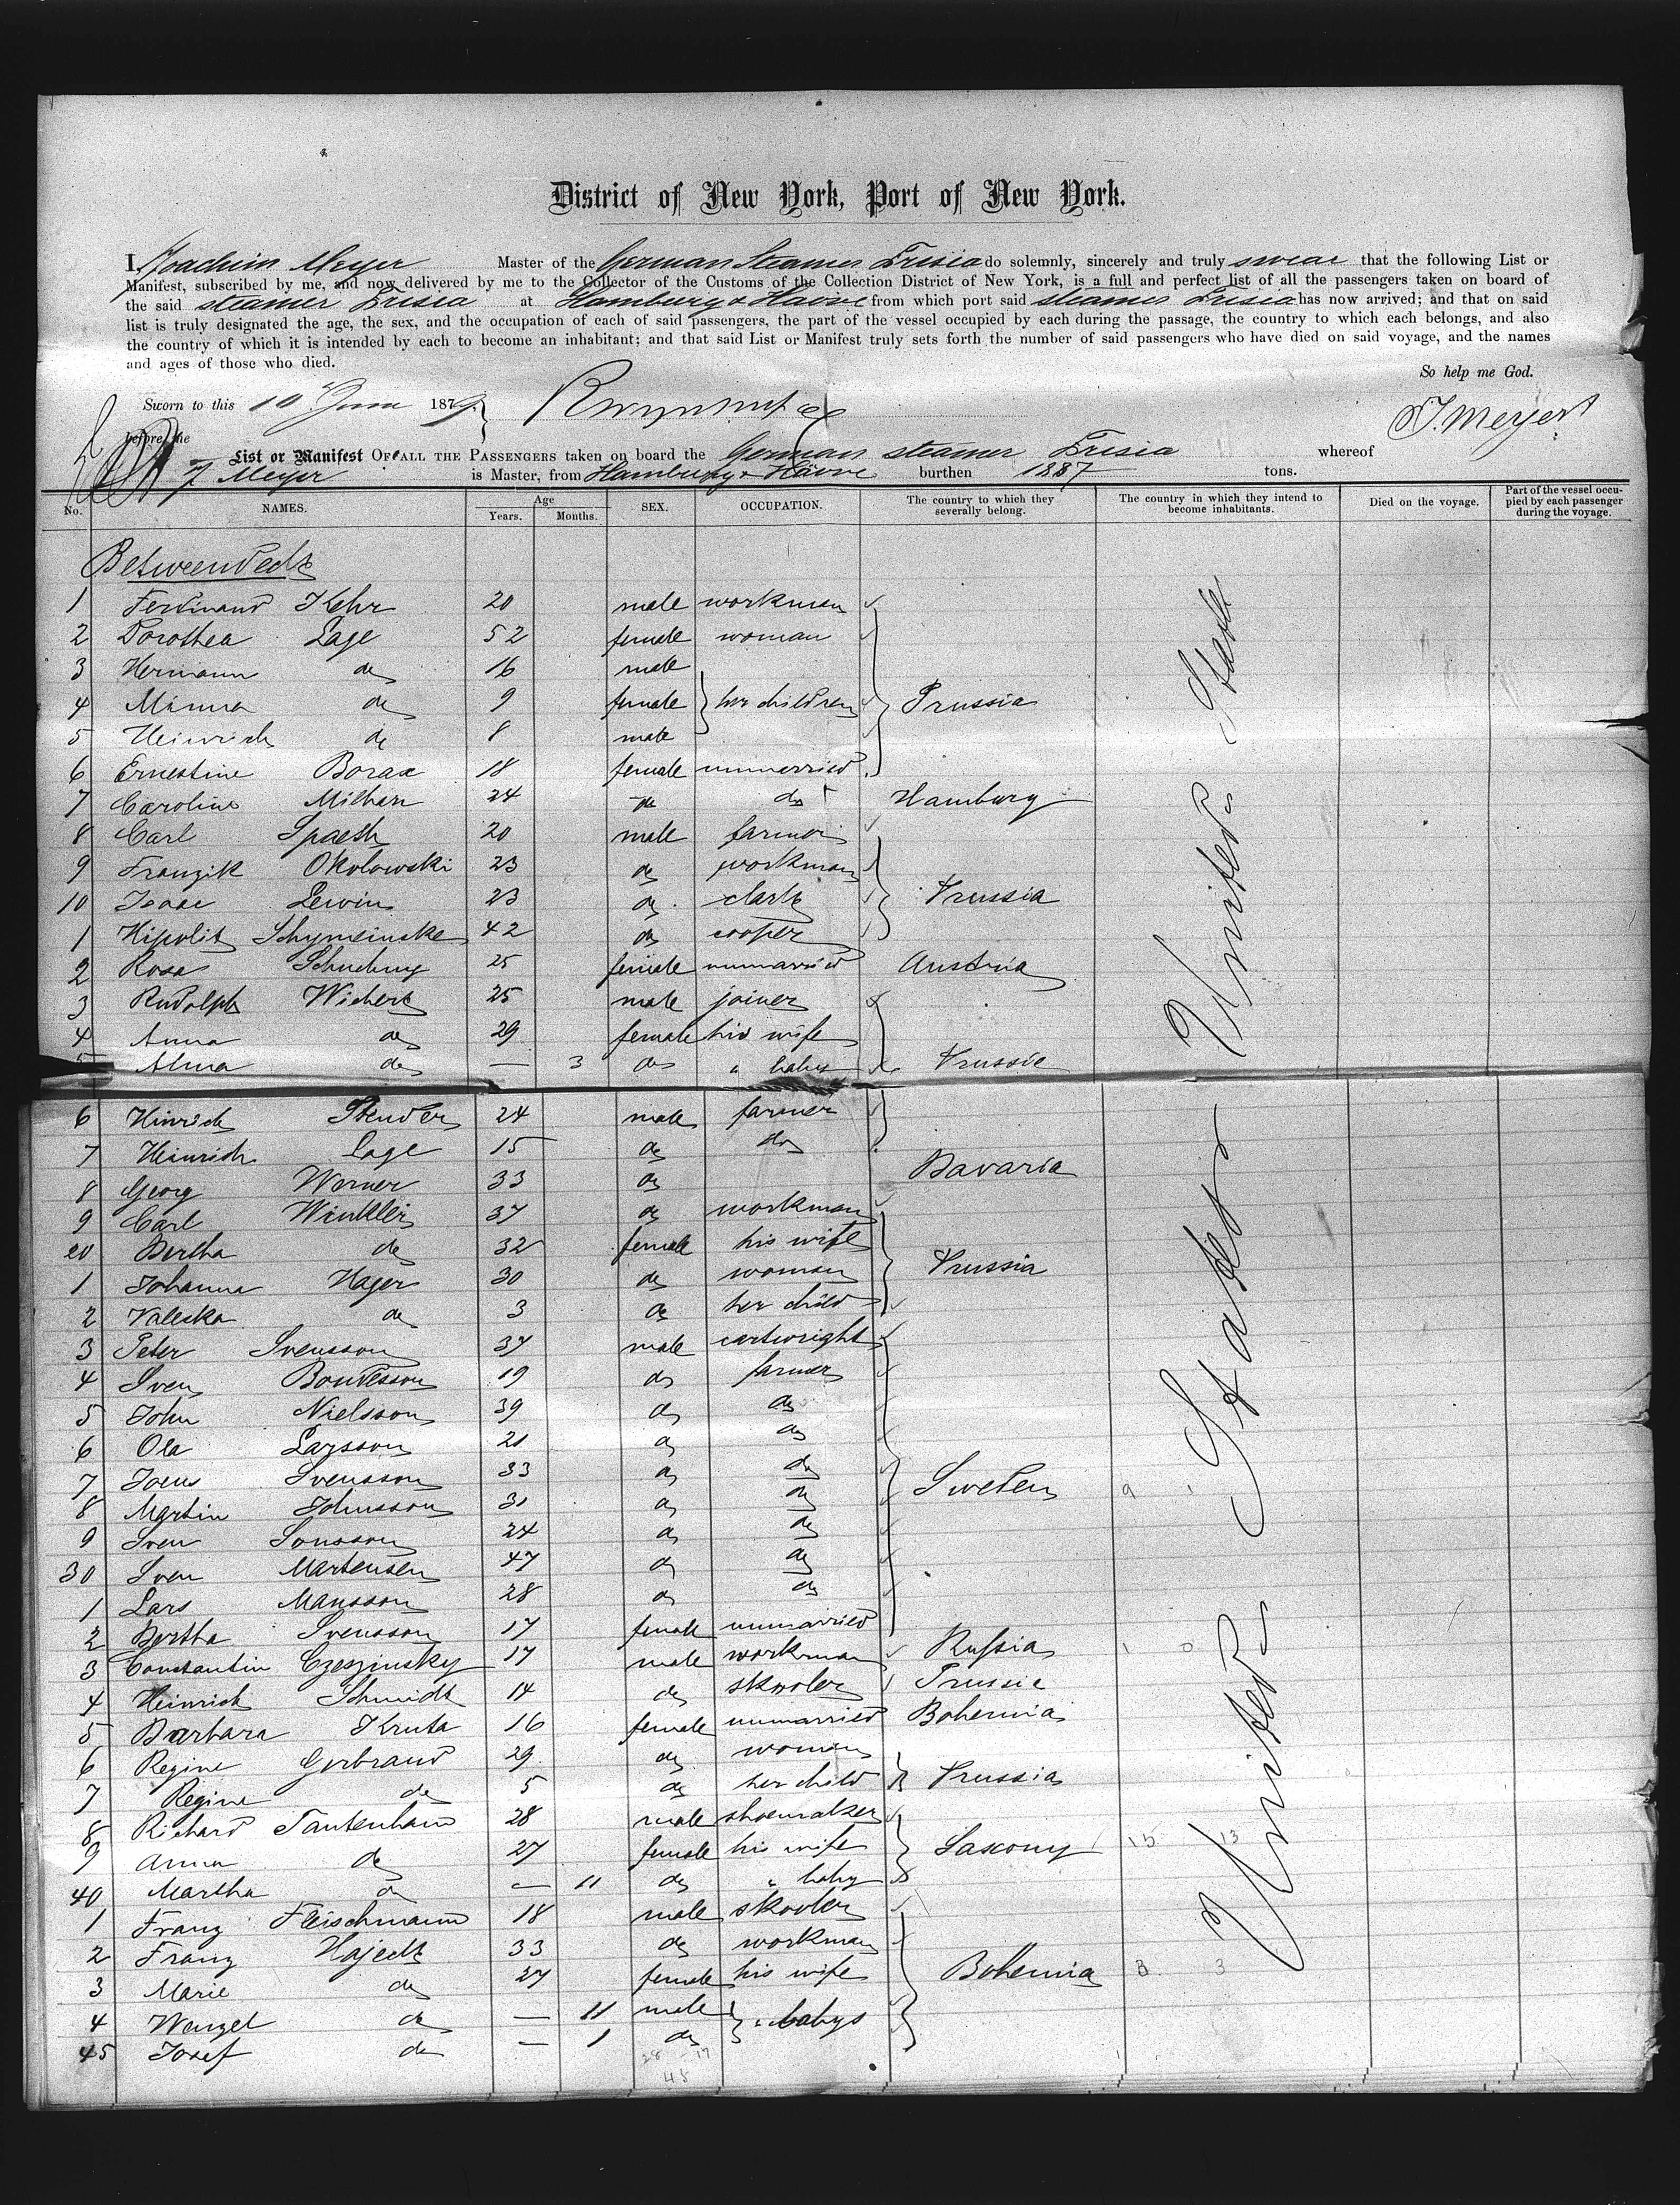 District of New York, Port of New York.
I, Joachim Meyer Master of the German Steamer Frisia do solemnly, sincerely and truly swear that the following List or
Manifest, subscribed by me, and now delivered by me to the Collector of the Customs of the Collection District of New York, is a full and perfect list of all the passengers taken on board of
the said steamer Frisia at Hamburg & Havre from which port said steamer Frisia has now arrived; and that on said
list is truly designated the age, the sex, and the occupation of each of said passengers, the part of the vessel occupied by each during the passage, the country to which each belongs, and also
the country of which it is intended by each to become an inhabitant; and that said List or Manifest truly sets forth the number of said passengers who have died on said voyage, and the names
and ages of those who died.
So help me God.
Sworn to this 10 June 1879
J. Meyer
before me
List or Manifest OF ALL THE PASSENGERS taken on board the German steamer Frisia whereof
J Meyer is Master, from Hamburg & Havre burthen 1887 tons.
No. NAMES. Age Years. Months. SEX. OCCUPATION. The country to which they severally belong. The country in which they intend to become inhabitants. Died on the voyage. Part of the vessel occupied by each passenger during the voyage.
Betweendeck
1 Ferdinand Kehr 20 male workman
2 Dorothea Lage 52 female woman
3 Hermann do 16 male
4 Minna do 9 female her children Prussia
5 Heinrich do 8 male
6 Ernestine Borax 18 female unmarried
7 Caroline Milhan 24 do do Hamburg
8 Carl Spaeth 20 male farmer
9 Franzik Okolowski 23 do workman
10 Isaac Lewin 23 do clark Prussia
1 Hipolit Schymeinske 42 do cooper
2 Rosa 25 female unmarried Austria
3 Rudolph Wichert 25 male joiner
4 Anna do 29 female his wife
5 Alma do — 3 do " baby Prussia
6 Hinrich Stender 24 male farmer
7 Heinrich Lage 15 do do
8 Georg Werner 33 do Bavaria
9 Carl Winkler 37 do workman
20 Bertha do 32 female his wife
1 Johanna Hager 30 do woman Prussia
2 Valeska do 3 do her child
3 Peter Svensson 37 male cartwright
4 Sven Bondesson 19 do farmer
5 John Nielsson 39 do do
6 Ola Larsson 21 do do
7 Joens Svensson 33 do do Sweden 9
8 Martin Johnsson 31 do do
9 Sven Jonsson 24 do do
30 Sven Martensen 47 do do
1 Lars Mansson 28 do do
2 Bertha Svensson 17 female unmarried
3 Constantin Czeszinsky 17 male workman Russia 1 0
4 Heinrich Schmidt 14 do skooler Prussia
5 Barbara Kruta 16 female unmarried Bohemia
6 Regine Gerbrand 29 do woman
7 Regine do 5 do her child Prussia
8 Richard Tautenhain 28 male shoemaker
9 Anna do 27 female his wife Saxony 15 13
40 Martha do — 11 do " baby
1 Franz Fleischmann 18 male skooler
2 Franz Hajeck 33 do workman
3 Marie do 27 female his wife Bohemia 3 3
4 Wenzel do — 11 male " babys
45 Josef do — 1 do
28 17
45
United States
United States